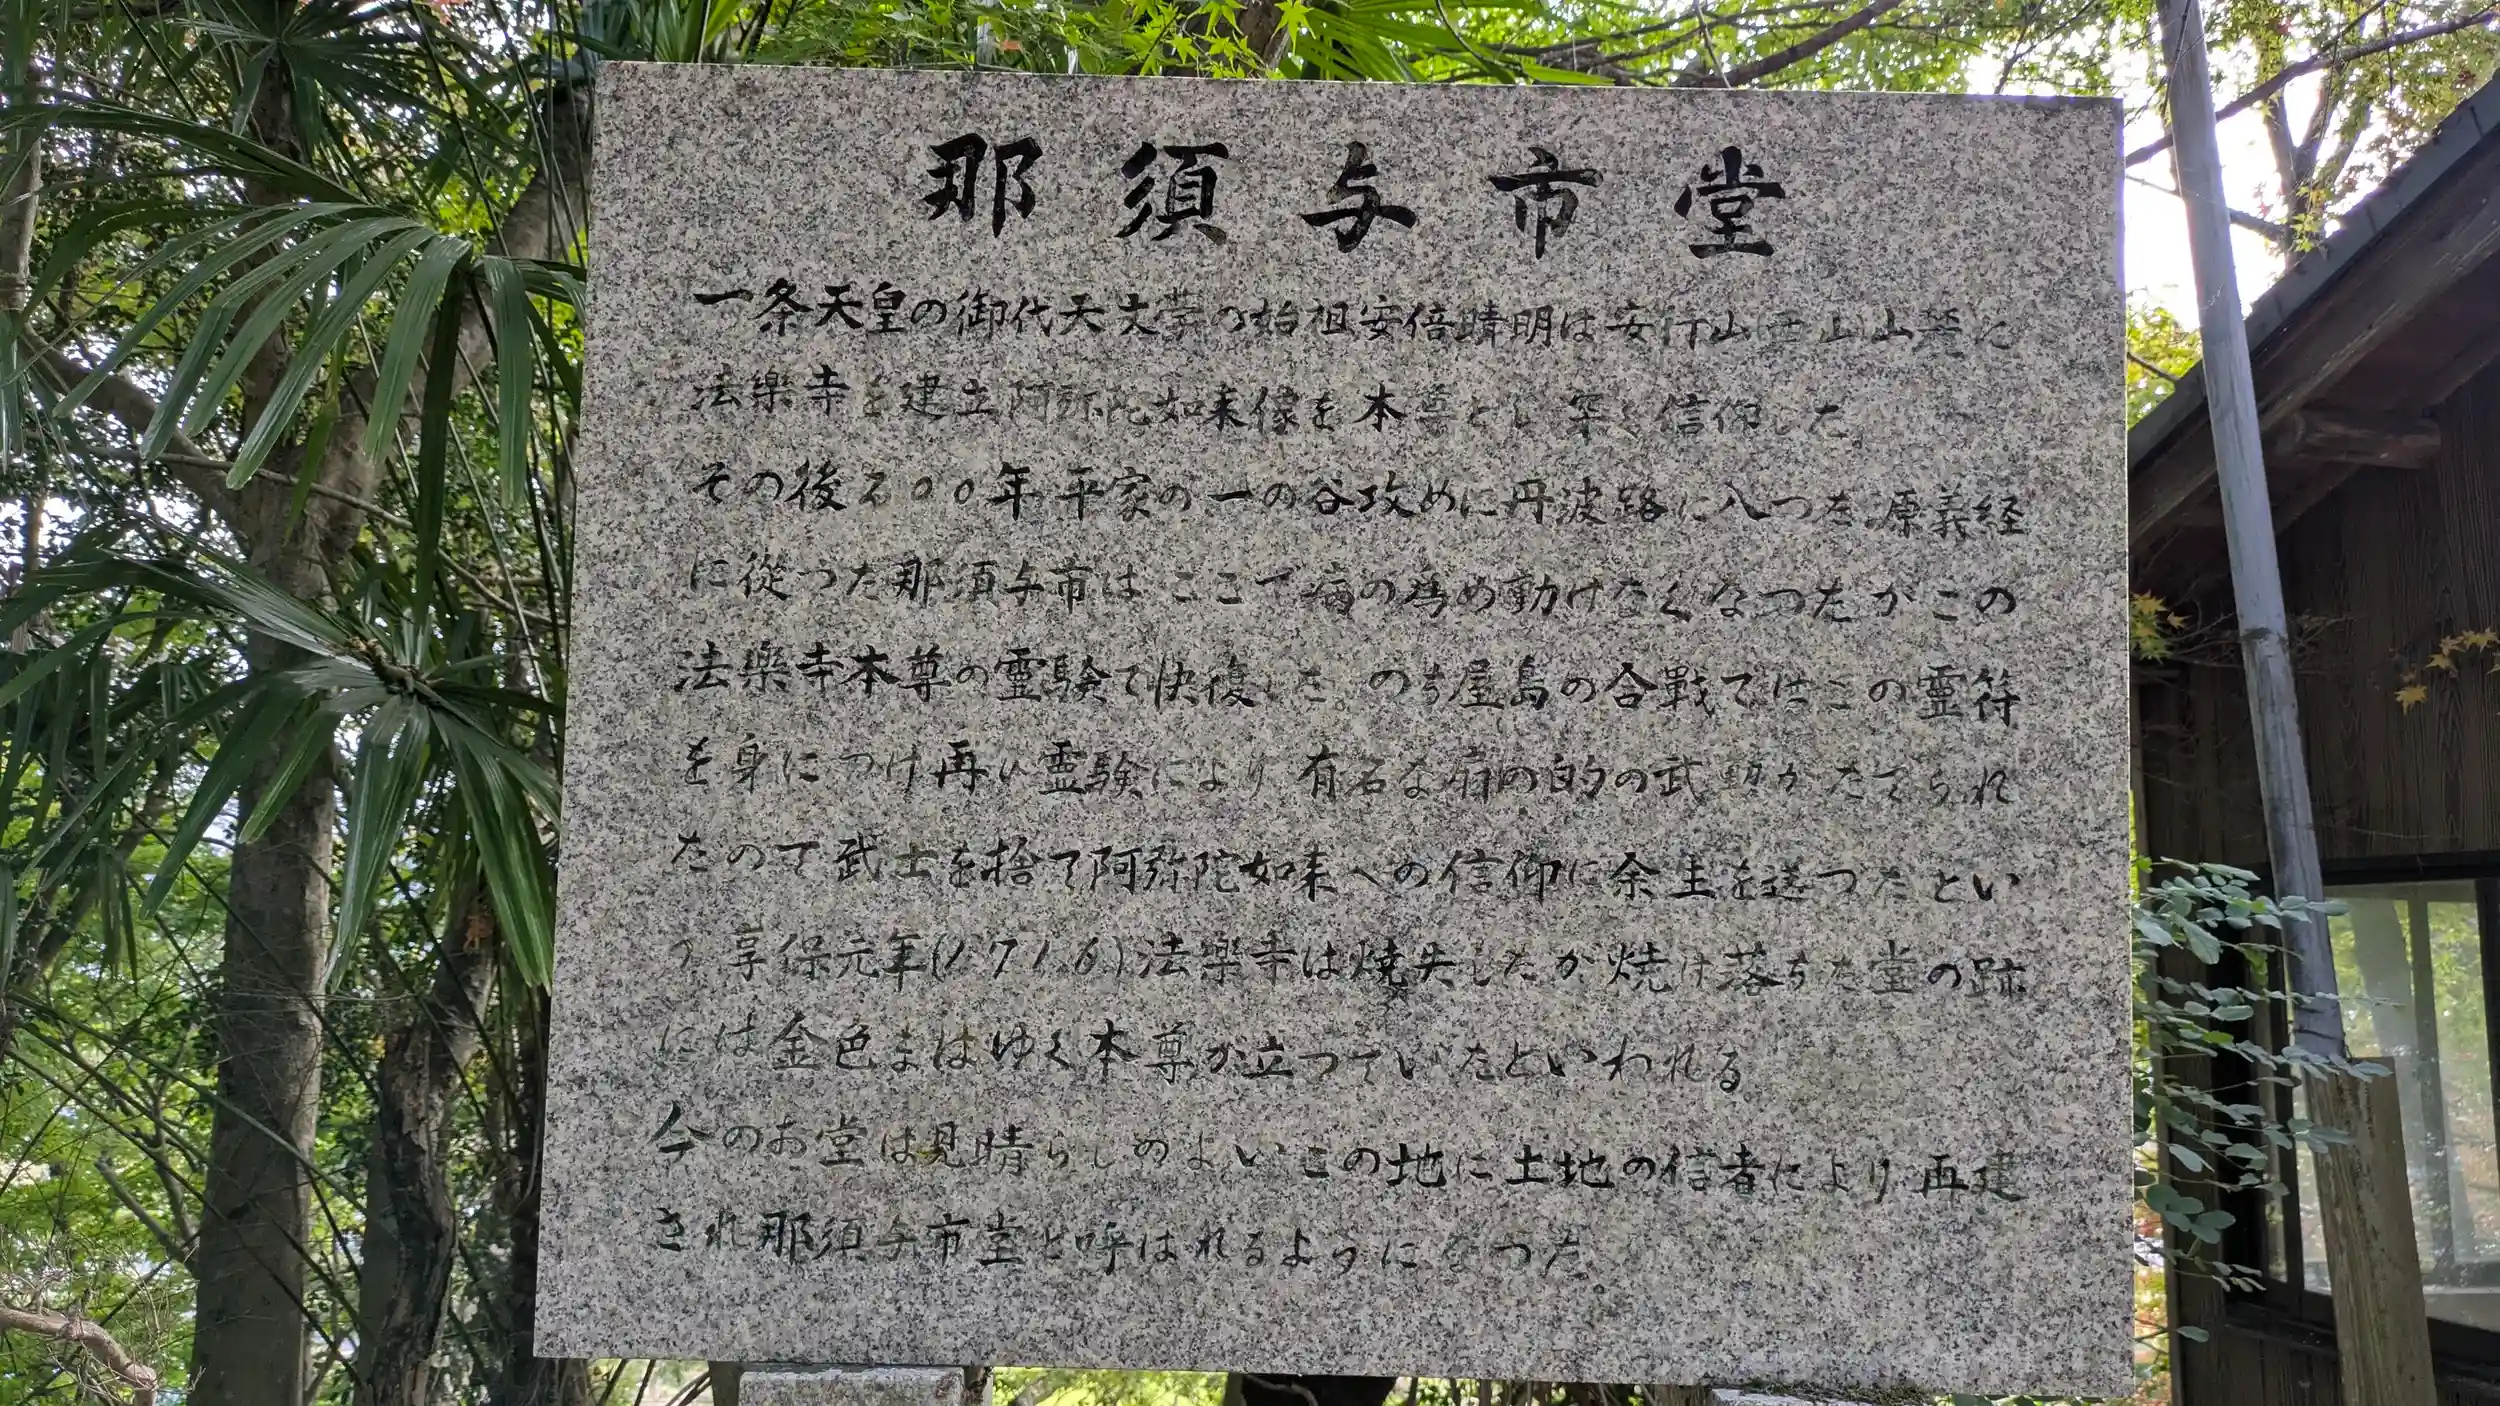 那須与市堂
一条天皇の御代天文学の始祖安倍晴明は安行山西山山麓に
法樂寺を建立阿弥陀如来像を本尊とし深く信仰した。
その後200年平家の一の谷攻めに丹波路に入つた源義経
に従つた那須与市はここで病の為め動けなくなつたがこの
法樂寺本尊の霊験で快復した。のち屋島の合戰ではこの霊符
を身につけ再び霊験により有名な扇の的の武勲がたてられ
たので武士を捨て阿弥陀如来への信仰に余生を送つたとい
う享保元年(1716)法樂寺は焼失したが焼け落ちた堂の跡
には金色まばゆく本尊が立つていたといわれる
今のお堂は見晴らしのよいこの地に土地の信者により再建
され那須与市堂と呼ばれるようになつた。